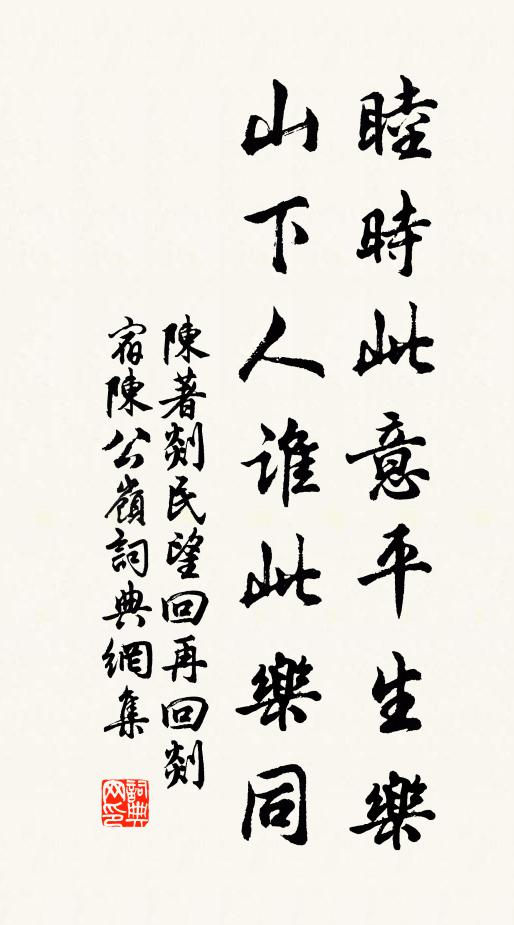 睦時此意平生樂
山下人誰此樂同
陳著剡民望回再回剡
宿陳公嶺詞典網集
詞典网印